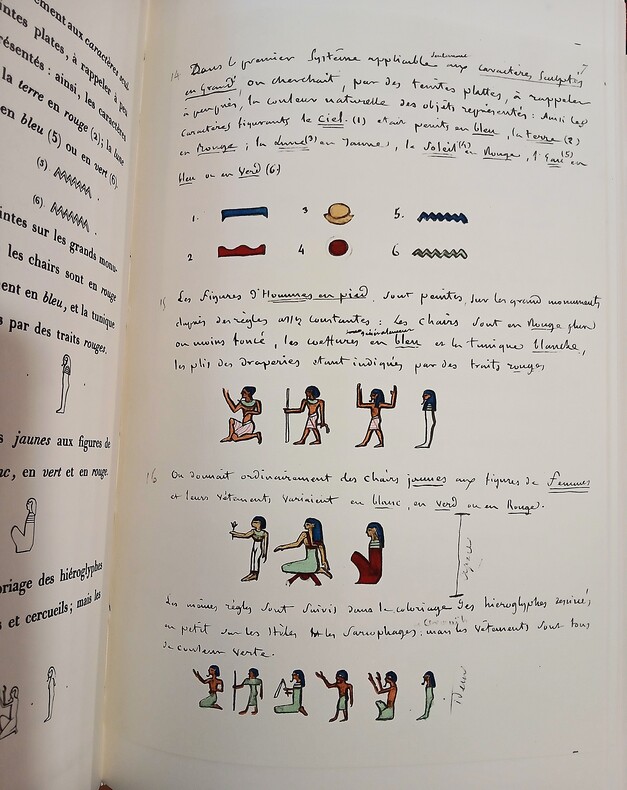 ement aux caractères scul
intes plates, à rappeler à peu
résentés : ainsi, les caractères
la terre en rouge (2); la lune
en bleu (5) ou en vert (6).
(5)
(6)
intes sur les grands monu-
les chairs sont en rouge
ent en bleu, et la tunique
s par des traits rouges.
s jaunes aux figures de
nc, en vert et en rouge.
oriage des hiéroglyphes
s et cercueils; mais les
7
14 Dans le premier Système applicable seulement aux caractères Sculptés
en Grand, on cherchait, par des teintes plattes, à rappeler
à peu près, la couleur naturelle des objets représentés : Ainsi les
Caractères figurants le Ciel (1) était peints en bleu, la terre (2)
en Rouge; la Lune (3) en Jaune, le Soleil (4) en Rouge, l'Eau (5) en
bleu ou en Verd (6.)
1. 3 5.
2 4 6
15 Les figures d'Hommes en pied, sont peintes, sur les grand monuments
d'après des règles assez constantes : les chairs sont en Rouge plus
ou moins foncé, les coeffures en bleu et la tunique blanche,
les plis des draperies étant indiqués par des traits rouges
16 On donnait ordinairement des chairs jaunes aux figures de femmes
et leurs vêtements variaient en blanc, en verd ou en Rouge.
Les mêmes règles sont suivis dans le coloriage des hieroglyphes dessinés
en petit sur les Stèles les Sarcophages; mais les vêtements sont tous
de couleur verte.